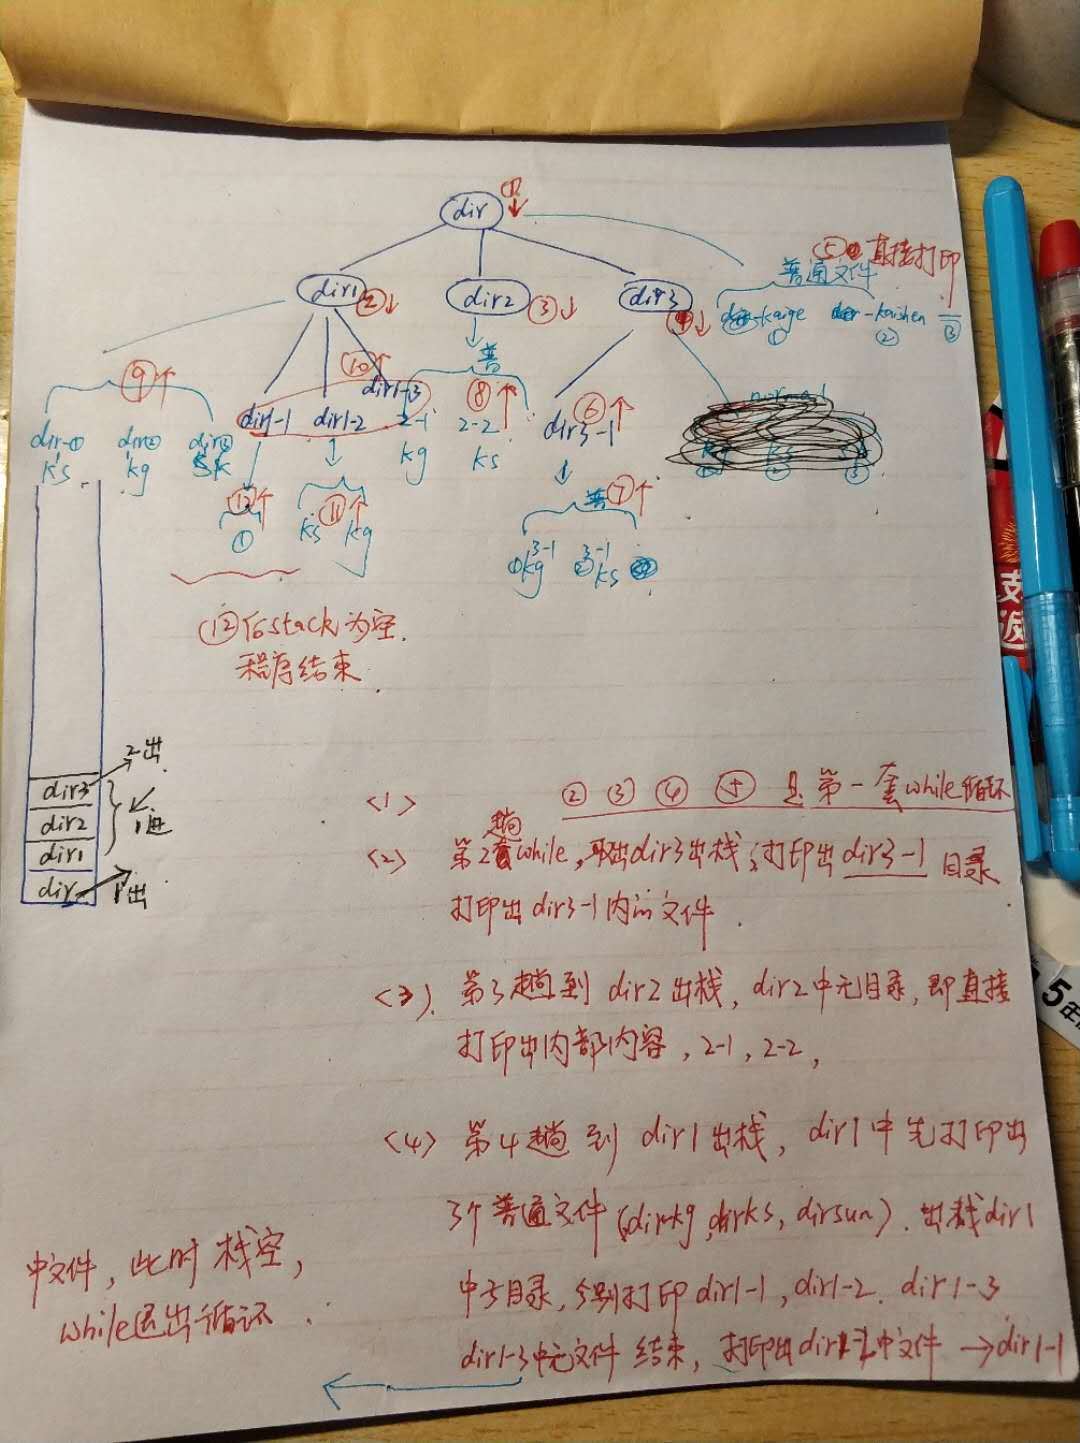 dir ① ↓
⑤ 直接打印
普通文件
dir1 ② ↓
dir2 ③ ↓
dir3 ④ ↓
-kaige ①
-kaishen ②
③
⑨ ↑
⑩ ↑
普
dir1-3
⑧ ↑
⑥ ↑
dir-① ks
dir② kg
dir③
dir1-1
dir1-2
2-1 kg
2-2 ks
dir3-1
⑫ ↑
①
ks ⑪ ↑ kg
普 ⑦ ↑
① 3-1 kg
② 3-1 ks
⑫后stack为空.
程序结束
2出
dir3
dir2
dir1
1进
dir
1出
<1> ② ③ ④ ⑤ 是第一套while循环
<2> 第2趟while, 取出dir3出栈;打印出dir3-1目录
打印出dir3-1内的文件.
<3>. 第3趟到dir2出栈, dir2中无目录, 即直接
打印出内部内容, 2-1, 2-2,
<4> 第4趟到dir1出栈, dir1中先打印出
3个普通文件(dirkg, dirks, dirsun). 出栈dir1
中子目录, 分别打印dir1-1, dir1-2. dir1-3
dir1-3中无文件结束, 打印出dir1-2中文件→dir1-1
中文件, 此时栈空,
while退出循环.
5年